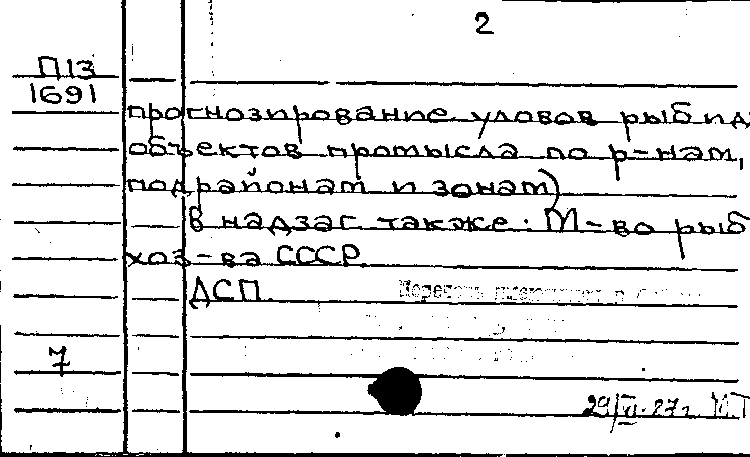 2
П13
1691
прогнозирование уловов рыб и д
объектов промысла по р-нам,
подрайонам и зонам)
В надзаг. также: М-во рыб
хоз-ва СССР.
ДСП.
7